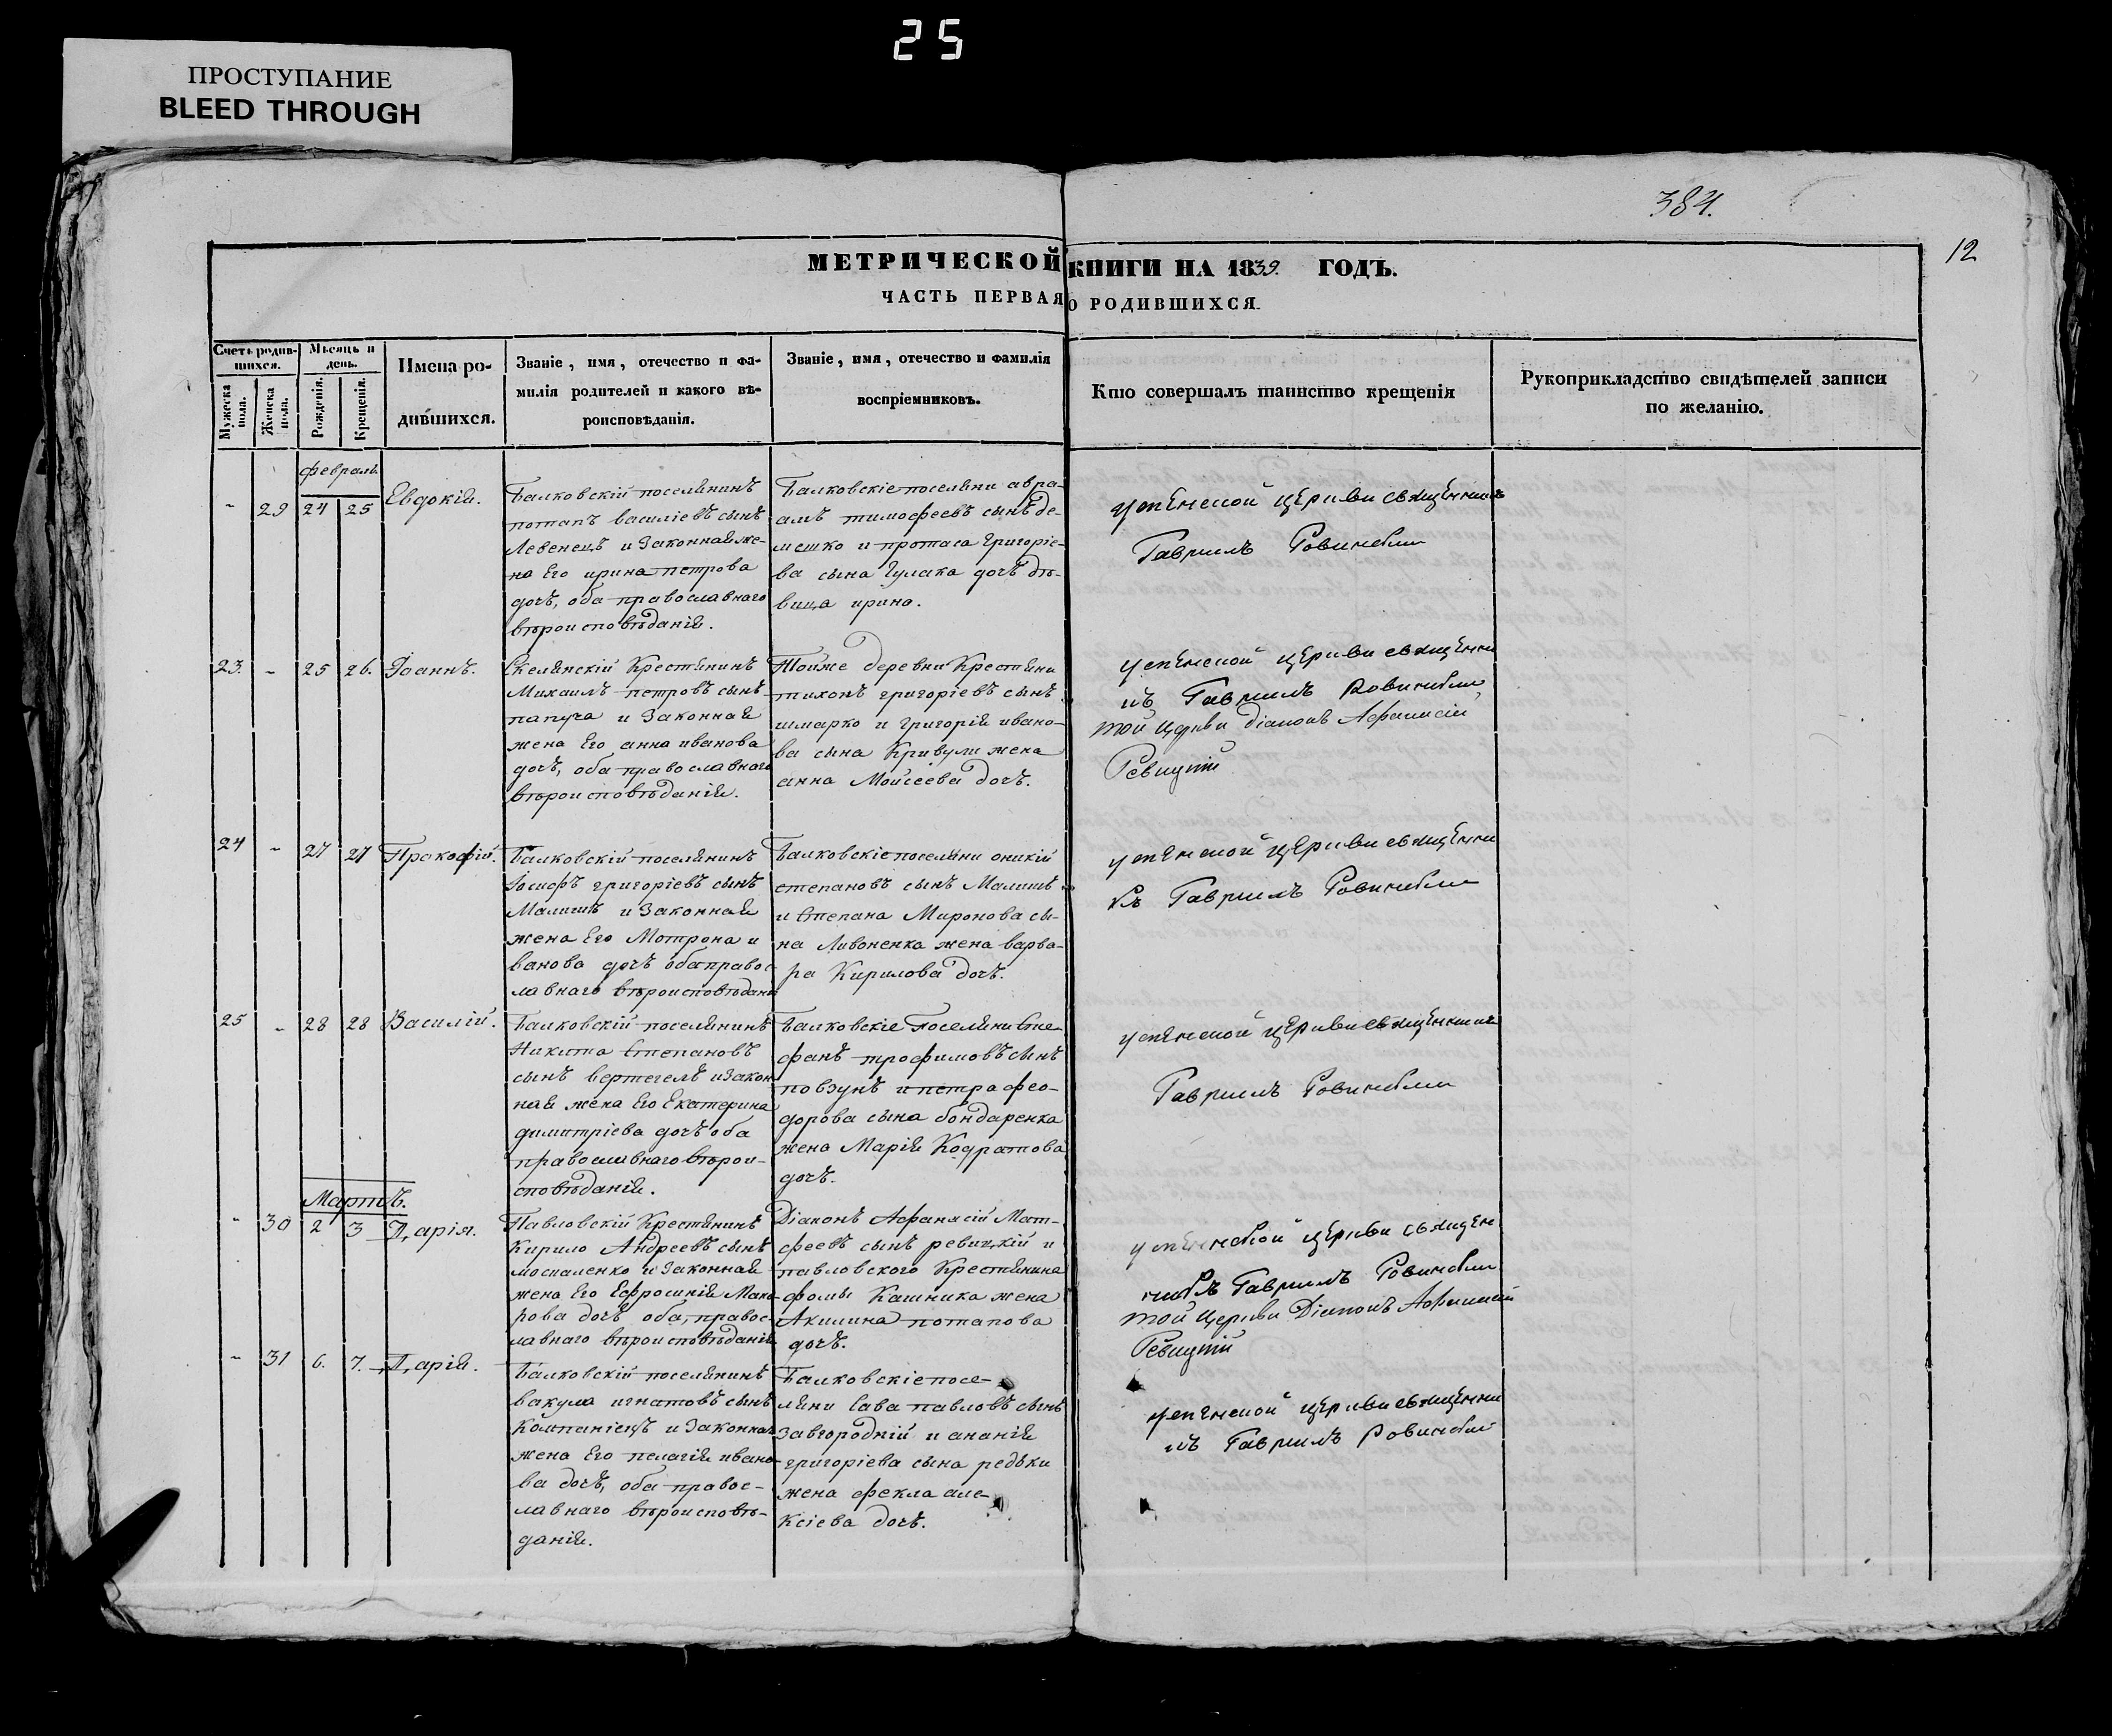 25
ПРОСТУПАНИЕ
BLEED THROUGH
384.
12
МЕТРИЧЕСКОЙ КНИГИ НА 1839. ГОДЪ.
ЧАСТЬ ПЕРВАЯ О РОДИВШИХСЯ.
Счетъ родив-
шихся.
Мужеска
пола.
Женска
пола.
Мѣсяцъ и
день.
Рожденія.
Крещенія.
Имена ро-
дившихся.
Званіе, имя, отечество и фа-
милія родителей и какого вѣ-
роисповѣданія.
Званіе, имя, отечество и фамилія
воспріемниковъ.
Кто совершалъ таинство крещенія
Рукоприкладство свидѣтелей записи
по желанію.
февраль.
- 29 24 25 Евдокія.
Балковскій поселянинъ
потапъ василіевъ сынъ
Левенецъ и Законная же-
на Его ирина петрова
дочь, оба православнаго
вѣроисповѣданія.
Балковскіе поселяни авра-
амъ тимофеевъ сынъ де-
мешко и протаса григоріе-
ва сына гулака дочь дѣ-
вица ирина.
успенской церкви священникъ
Гавріилъ Ровинскій
23. - 25 26. Іоаннъ.
Скелянскій Крестянинъ
Михаилъ петровъ сынъ
папуга и Законная
жена Его анна иванова
дочь, оба православнаго
вѣроисповѣданія.
Тойже деревни Крестяни
тихонъ григоріевъ сынъ
шмарко и григорія ивано-
ва сына Кривули жена
анна Мойсеева дочь.
успенской церкви священни
къ Гавріилъ Ровинскій
той Церкви Діаконъ Афанасій
Ревицкій
24 - 27 27 Прокофій.
Балковскій поселянинъ
Іосифъ григоріевъ сынъ
Малишъ и Законная
жена Его Мотрона и
ванова дочь оба правос-
лавнаго вѣроисповѣдан
Балковскіе поселяни оникій
степановъ сынъ Малишъ
и Степана Миронова сы-
на Ливоненка жена варва-
ра Кирилова дочь.
успенской церкви священни
къ Гавріилъ Ровинскій
25 - 28 28 Василій.
Балковскій поселянинъ
Никита Степановъ
сынъ вертегелъ и Закон
ная жена Его Екатерина
димитріева дочь оба
православнаго вѣрои-
сповѣданія.
Балковскіе Поселяни Сте-
фанъ трофимовъ сынъ
повзунъ и петра фео-
дорова сына бондаренка
жена Марія Кодратова
дочь.
успенской церкви священникъ
Гавріилъ Ровинскій
Мартъ.
- 30 2 3 Дарія.
Павловскій Крестянинъ
Кирило Андреевъ сынъ
москаленко и Законная
жена Его Ефросинія Мака-
рова дочь оба, правос-
лавнаго вѣроисповѣданія
Діаконъ Афанасій Мат-
феевъ сынъ ревицкій и
павловского Крестянина
фомы Кашника жена
Акилина потапова
дочь.
успенской церкви священ
никъ Гавріилъ Ровинскій
той Церкви Діаконъ Афанасій
Ревицкій
- 31 6. 7. Дарія.
Балковскій поселянинъ
вакула игнатовъ сынъ
Компаніецъ и Законная
жена Его пелагія ивано-
ва дочь, оба правос-
лавнаго вѣроисповѣ-
данія.
Балковскіе посе-
ляни Сава павловъ сынъ
Завгородній и ананія
григоріева сына редьки
жена фекла але-
ксіева дочь.
успенской церкви священни
къ Гавріилъ Ровинскій